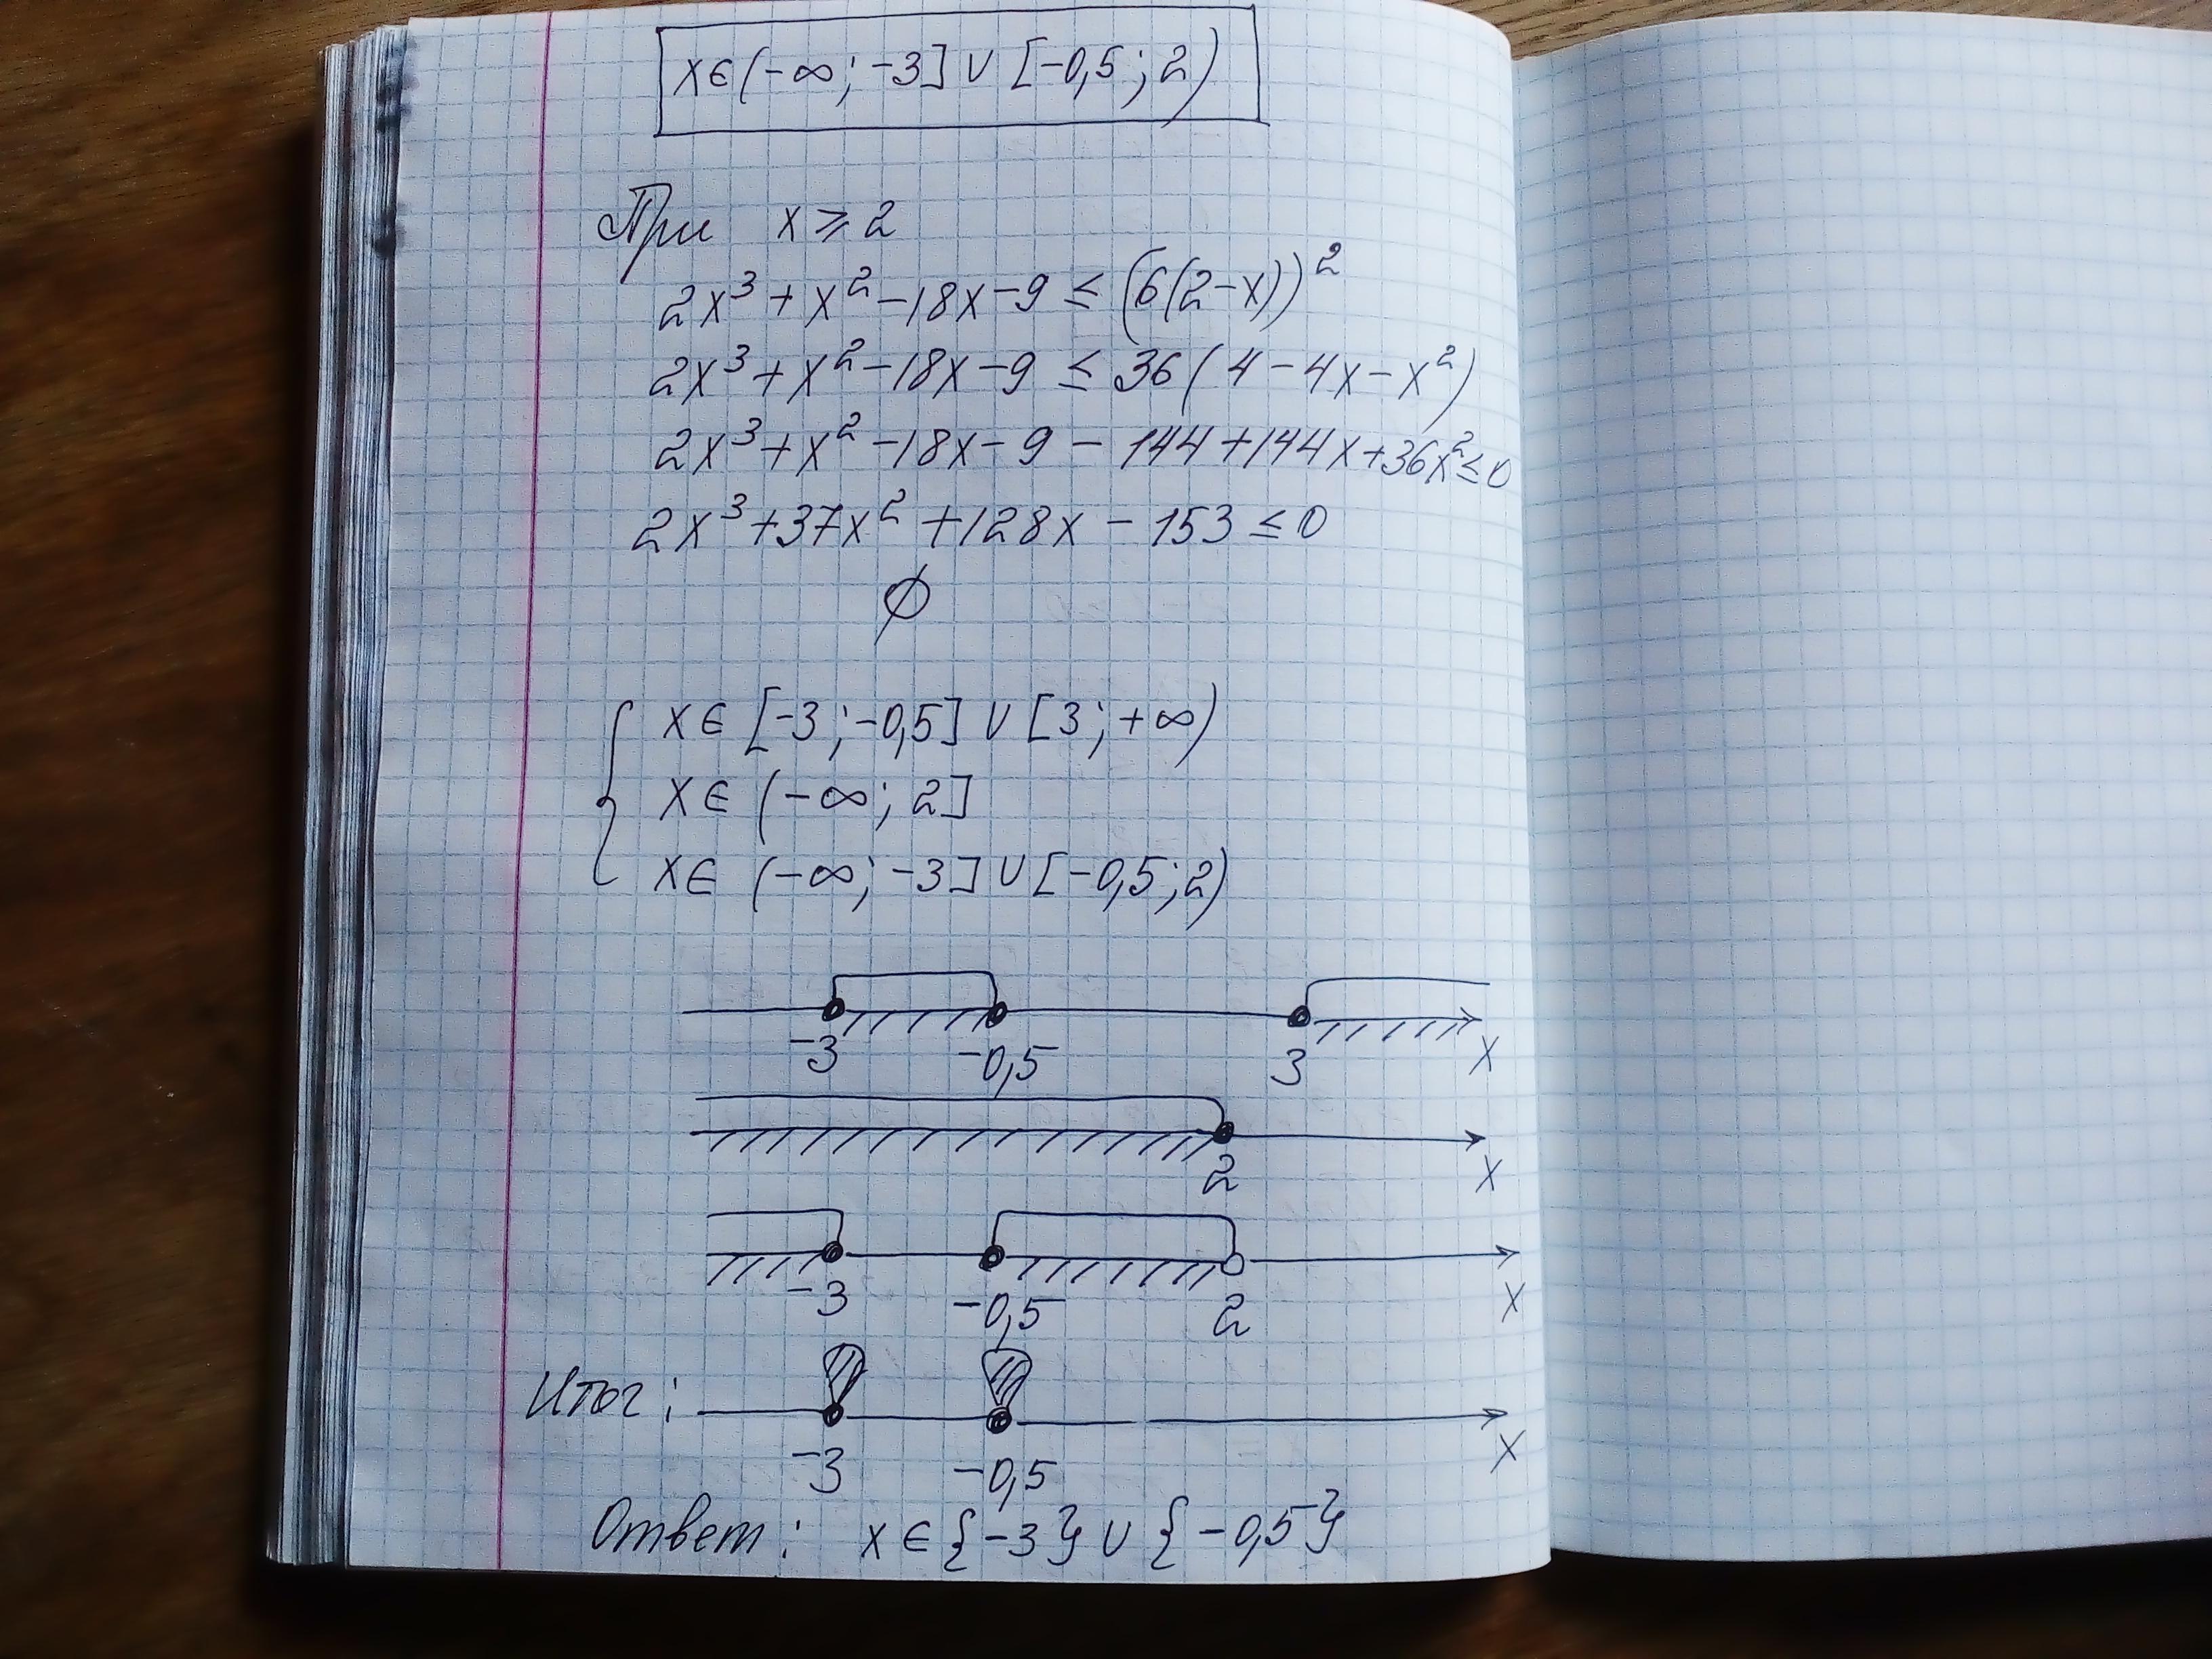 x∈(-∞; -3] ∪ [-0,5; 2)
При x ⩾ 2
2x³ + x² - 18x - 9 ≤ (6(2-x))²
2x³ + x² - 18x - 9 ≤ 36(4 - 4x - x²)
2x³ + x² - 18x - 9 - 144 + 144x + 36x² ≤ 0
2x³ + 37x² + 128x - 153 ≤ 0
∅
{ x∈ [-3; -0,5] ∪ [3; +∞)
x∈ (-∞; 2]
x∈ (-∞; -3] ∪ [-0,5; 2)
-3 -0,5 3 x
2 x
-3 -0,5 2 x
Итог:
-3 -0,5 x
Ответ: x∈{-3} ∪ {-0,5}